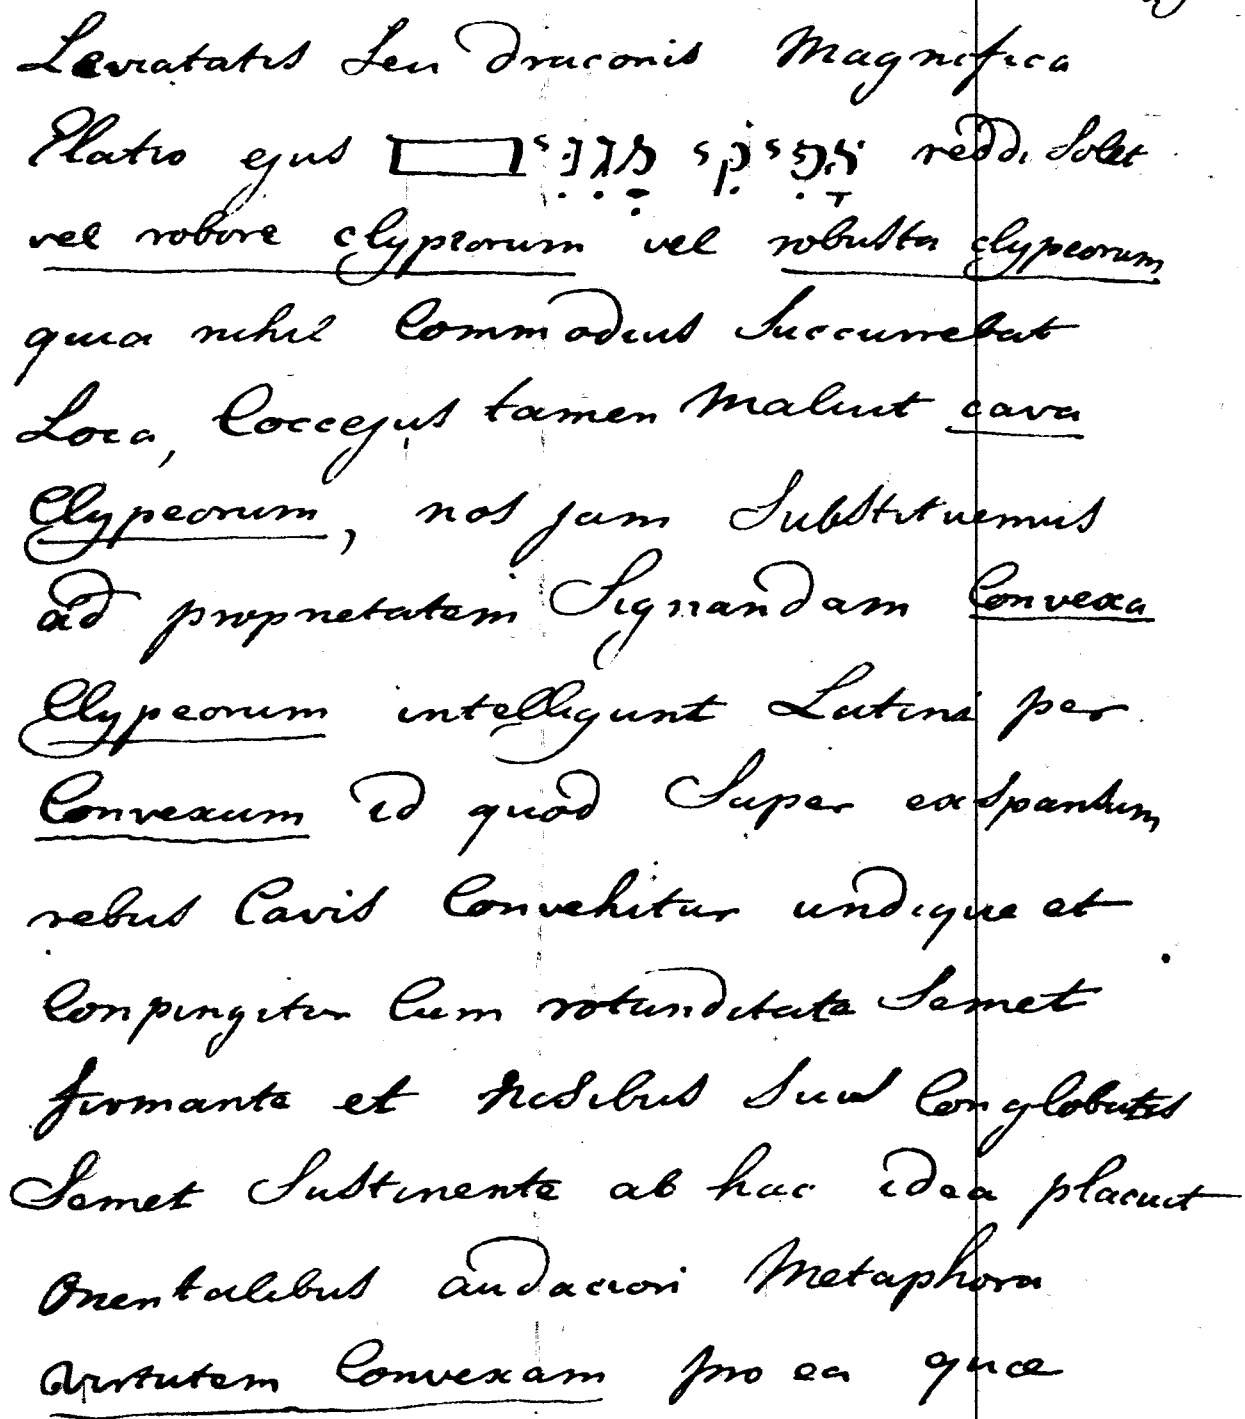 Leviatatis Seu draconis Magnifica
Elatio ejus אפיקי מגנים reddi Solet
vel robore clypeorum vel robusta clypeorum
quia nihil Commodius Succurrebat
Loca, Coccejus tamen Maluit cava
Clypeorum, nos jam Substituemus
ad proprietatem Signandam Convexa
Clypeorum intelligunt Latini per
Convexum id quod Super expansum
rebus Cavis Convehitur undique et
Conpingitur Cum rotunditate Semet
firmante et nisibus Suis Conglobatis
Semet Sustinente ab hac idea placuit
Orientalibus audaciori Metaphora
virtutem Convexam pro ea quae